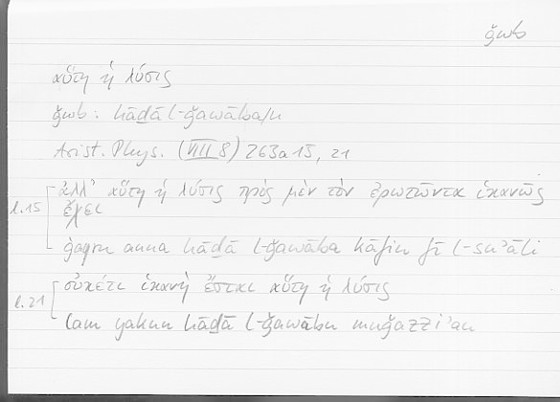 ǧwb
αὕτη ἡ λύσις
ǧwb : hāḏā l-ǧawāba/u
Arist. Phys. (VIII 8) 263a15, 21
l.15 ἀλλ' αὕτη ἡ λύσις πρὸς μὲν τὸν ἐρωτῶντα ἱκανῶς
ἔχει
ġayru anna hāḏā l-ǧawāba kāfin fī l-suʾāli
l.21 οὐκέτι ἱκανὴ ἔσται αὕτη ἡ λύσις
lam yakun hāḏā l-ǧawābu muǧazziʾan